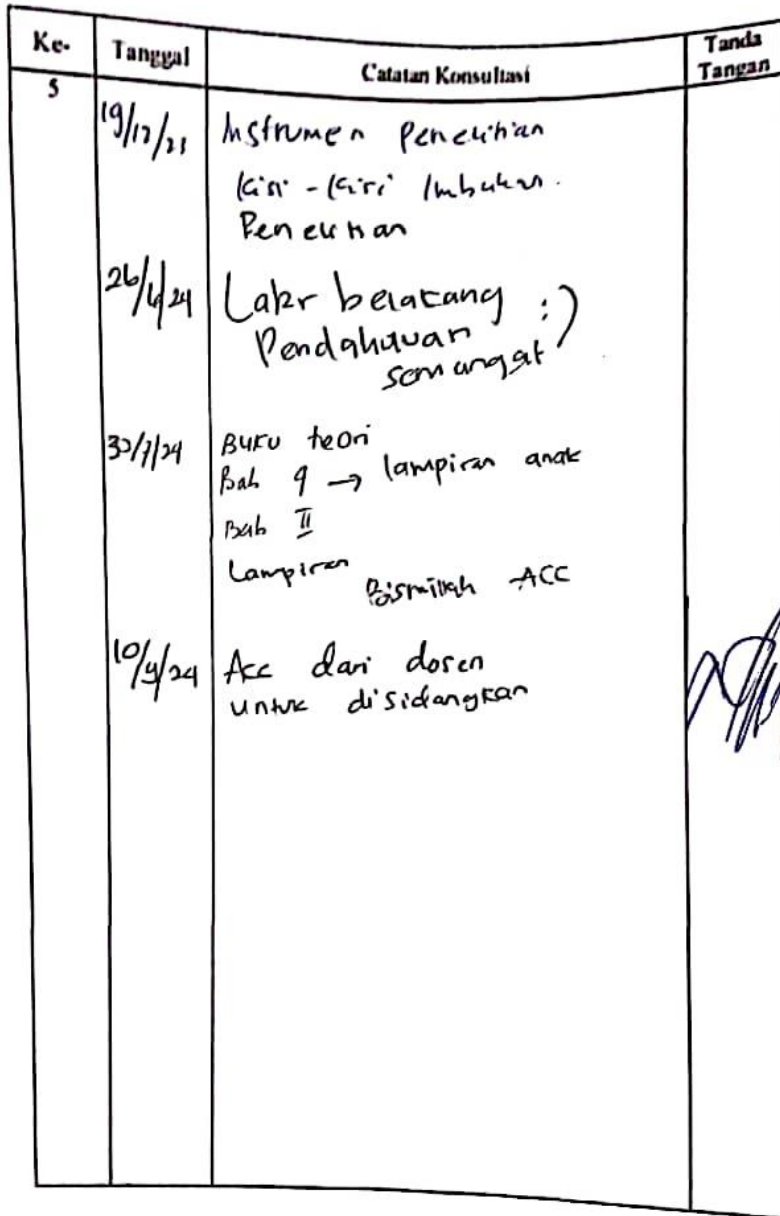 Ke- Tanggal Catatan Konsultasi Tanda Tangan
5
19/12/23 Instrumen Penelitian
kisi-kisi
Penelitian
26/4/24 Latar belakang
Pendahuluan :)
semangat
30/7/24 Buku teori
Bab 4 → lampiran anak
Bab II
Lampiran
Bismillah ACC
10/9/24 Acc dari dosen
untuk disidangkan